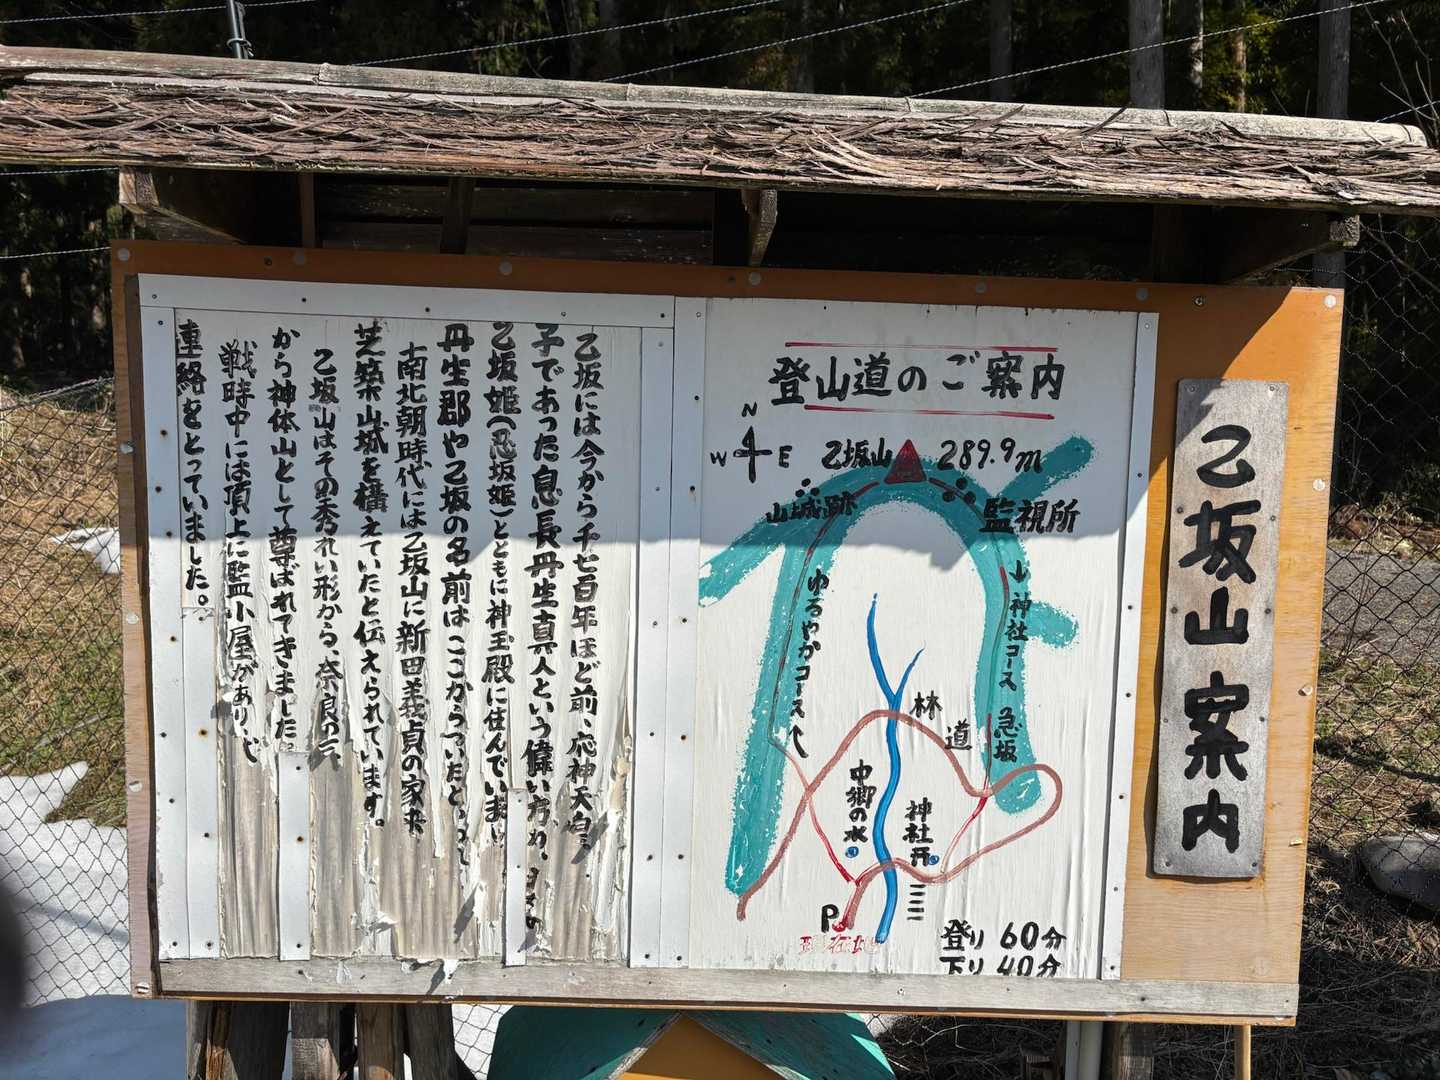 乙坂山案内
登山道のご案内
N
W E
乙坂山 289.9m
山城跡
監視所
ゆるやかコース
神社コース
急坂
林道
中郷の水
神社
P
現在地
登り 60分
下り 40分
乙坂には今から千七百年ほど前、応神天皇
子であった息長丹生真人という偉い方が、
乙坂姫(忍坂姫)とともに神玉殿に住んでいま
丹生郡や乙坂の名前はここからついたといって
南北朝時代には乙坂山に新田義貞の家来
芝築山城を構えていたと伝えられています。
乙坂山はその秀れい形から、奈良の三
から神体山として尊ばれてきました。
戦時中には頂上に監小屋があり、
連絡をとっていました。